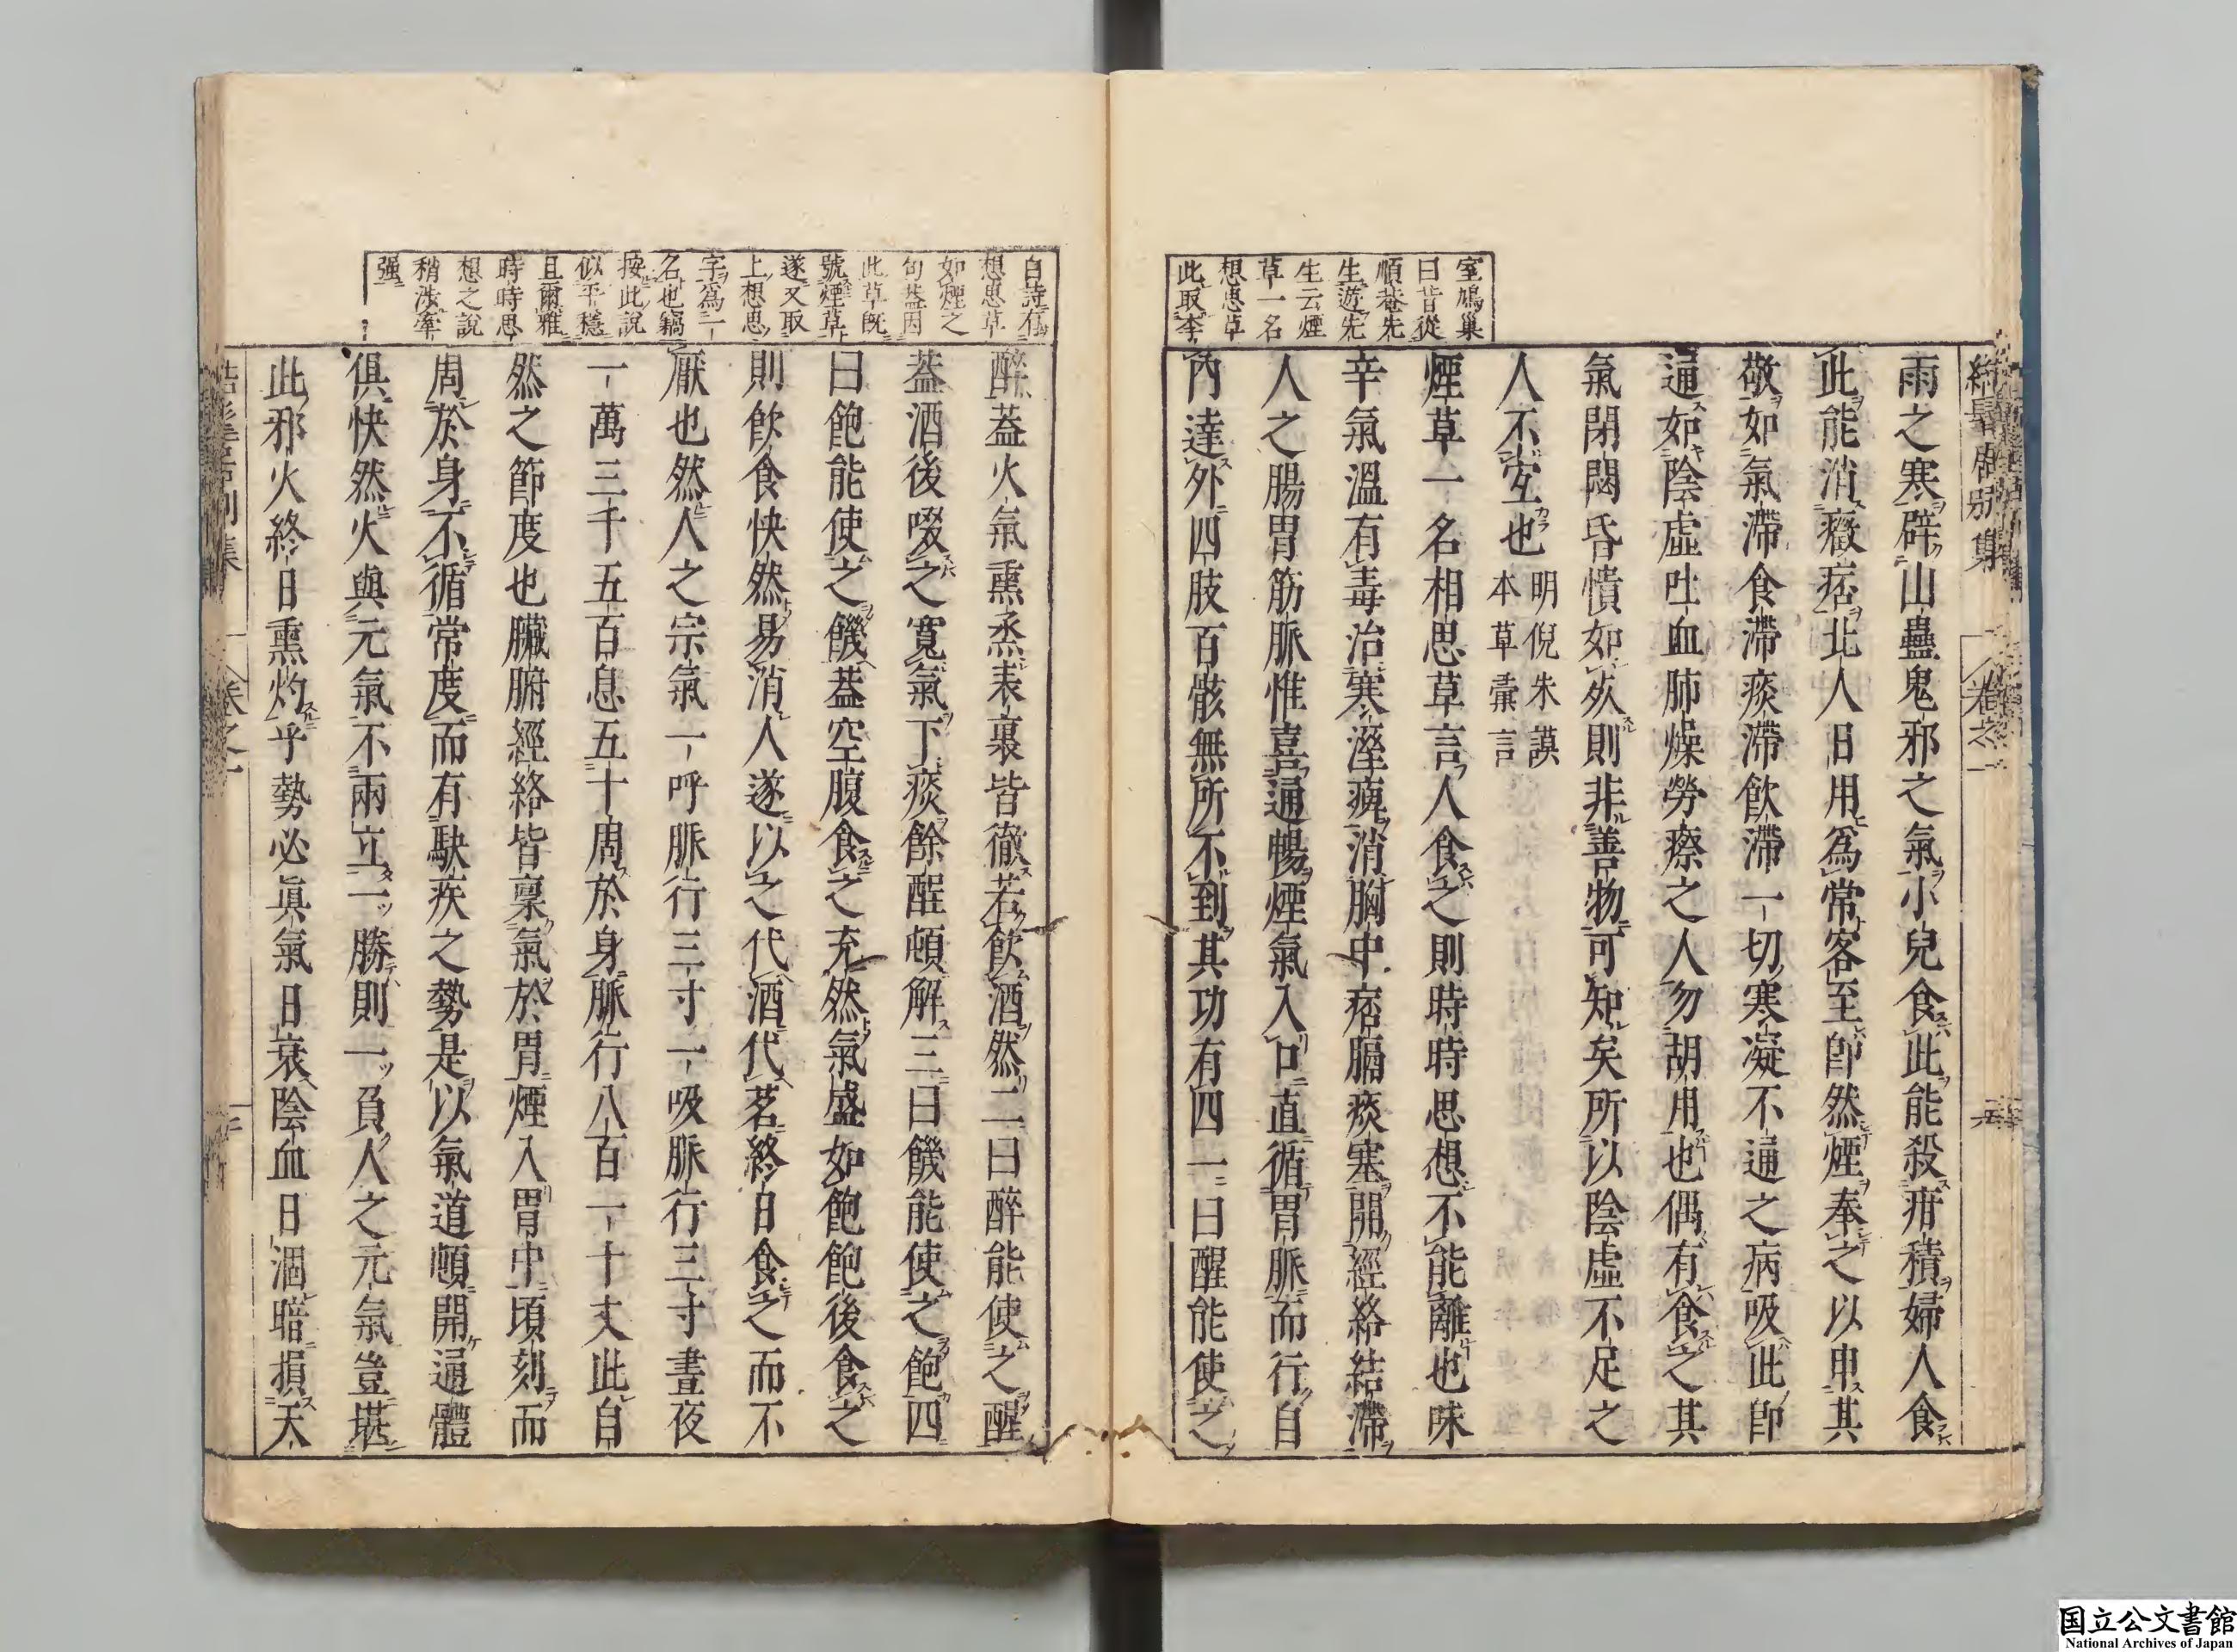 雨之寒辟山蠱鬼邪之氣小兒食此能殺疳積婦人食
此能消癥痞北人日用爲常客至卽然煙奉之以申其
敬如氣滯食滯痰滯飮滯一切寒凝不通之病吸此卽
通如陰虛吐血肺燥勞瘵之人勿胡用也偶有食之其
氣閉悶昏憒如死則非善物可知矣所以陰虛不足之
人不宜也
明倪朱謨
本草彙言
煙草一名相思草言人食之則時時思想不能離也味
辛氣溫有毒治寒溼痺消胸中痞膈痰塞開經絡結滯
人之腸胃筋脈惟喜通暢煙氣入口直循胃脈而行自
內達外四肢百骸無所不到其功有四一曰醒能使之
室鳩巢
曰昔從
順菴先
生遊先
生云煙
草一名
想思草
此取李
卷之一
醉蓋火氣熏烝表裏皆徹若飮酒然二曰醉能使之醒
蓋酒後啜之寬氣下痰餘酲頓解三曰饑能使之飽四
曰飽能使之饑蓋空腹食之充然氣盛如飽飽後食之
則飮食快然易消人遂以之代酒代茗終日食之而不
厭也然人之宗氣一呼脈行三寸一吸脈行三寸晝夜
一萬三千五百息五十周於身脈行八百一十丈此自
然之節度也臟腑經絡皆稟氣於胃煙入胃中頃刻而
周於身不循常度而有駃疾之勢是以氣道頓開通體
俱快然火與元氣不兩立一勝則一負人之元氣豈堪
此邪火終日熏灼乎勢必眞氣日衰陰血日涸暗損天
白詩有
想思草
如煙之
句蓋因
此草旣
號煙草
遂又取
上想思
字爲一
名也竊
按此說
似平穩
且爾雅
時時思
想之說
稍涉牽
强
国立公文書館
National Archives of Japan